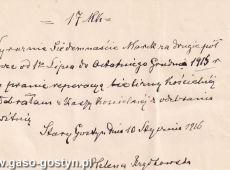 — 17 Mk —
wyraźnie Siedemnaście Marek za drugie pół
od 1go Lipca do ostatniego Grudnia 1915 r
pranie reperację bielizny kościelnej
odebrałam z Kasy Kościelnej
Stary Gostyń dnia 10 Stycznia 1916
Helena
www.gaso-gostyn.pl